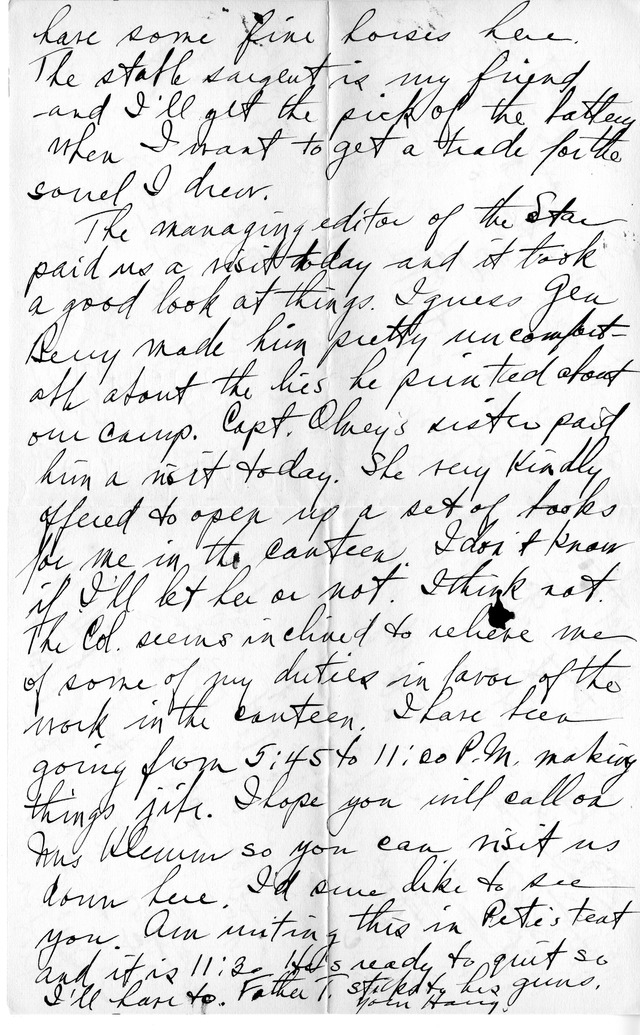 have some fine horses here.
The stable sargent is my friend
and I'll get the pick of the battery
when I want to get a trade for the
sorrel I drew.
The managing editor of the Star
paid us a visit today and it took
a good look at things. I guess Gen
Berry made him pretty uncomfort-
able about the lies he printed about
our camp. Capt. Olney's sister paid
him a visit today. She very kindly
offered to open up a set of books
for me in the canteen. I don't know
if I'll let her or not. I think not.
The Col. seems inclined to relieve me
of some of my duties in favor of the
work in the canteen. I have been
going from 5:45 to 11:00 P.M. making
things jibe. I hope you will call on
Mrs Klemm so you can visit us
down here. I'd sure like to see
you. Am writing this in Pete's tent
and it is 11:30. He's ready to quit so
I'll have to. Father T. sticks to his guns.
Your Harry.